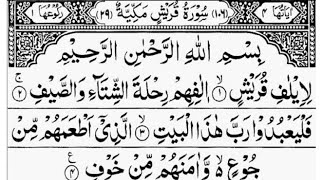 اٰيَاتُهَا ٤ (١٠٦) سُوْرَةُ قُرَيْشٍ مَكِّيَّةٌ (٢٩) رُكُوْعُهَا ١
بِسْمِ اللّٰهِ الرَّحْمٰنِ الرَّحِيْمِ
لِاِيْلٰفِ قُرَيْشٍ ۙ‏ ١ اٖلٰفِهِمْ رِحْلَةَ الشِّتَآءِ وَالصَّيْفِ ۚ‏ ٢
فَلْيَعْبُدُوْا رَبَّ هٰذَا الْبَيْتِ ۙ‏ ٣ الَّذِىْٓ اَطْعَمَهُمْ مِّنْ
جُوْعٍ ۙ۬ وَّاٰمَنَهُمْ مِّنْ خَوْفٍ ٤ ع